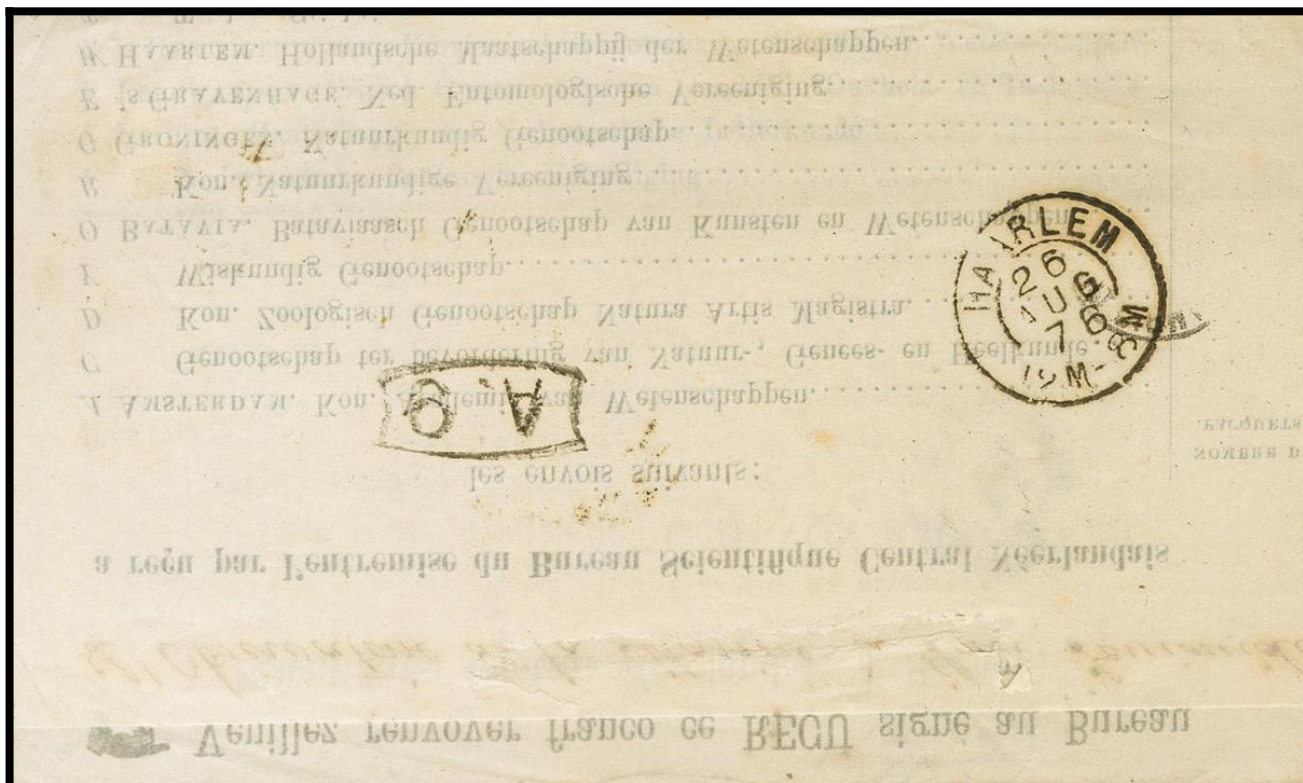 Veuillez renvoyer franco ce REÇU signé au Bureau
a reçu par l'entremise du Bureau Scientifique Central Néerlandais
les envois suivants:
NOMBRE D
PACQUETS
A AMSTERDAM. Kon. Akademie van Wetenschappen
C Genootschap ter bevordering van Natuur-, Genees- en Heelkunde.
D Kon. Zoologisch Genootschap Natura Artis Magistra
Wiskundig Genootschap
O BATAVIA. Bataviaasch Genootschap van Kunsten en Wetenschappen
Kon. Natuurkundige Vereeniging
GRONINGEN. Natuurkundig Genootschap
'S GRAVENHAGE. Ned. Entomologische Vereeniging
HAARLEM. Hollandsche Maatschappij der Wetenschappen
HAARLEM
26
AUG
76